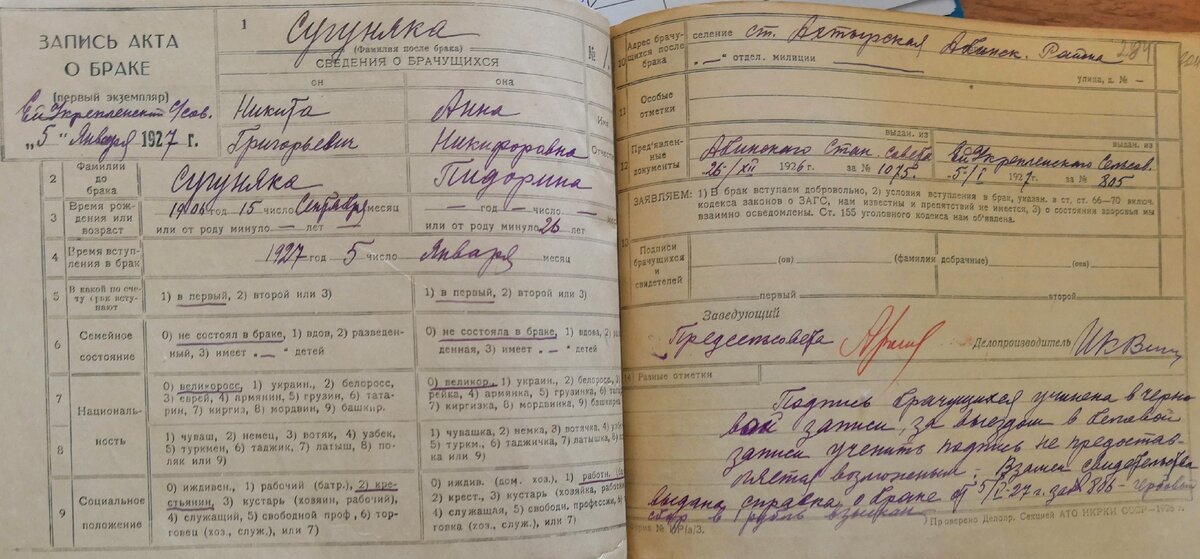 ЗАПИСЬ АКТА
О БРАКЕ
(первый экземпляр)
Ей Укрепленский с/сов.
„5" Января 1927 г.
1
Сугуняка
(Фамилия после брака)
№ 1
СВЕДЕНИЯ О БРАЧУЩИХСЯ
он
она
Никита
Анна
Имя
Григорьевич
Никифоровна
Отчество
2
Фамилии
до
брака
Сугуняка
Пидорина
3
Время рож-
дения или
возраст
1906 год 15 число Сентября месяц
или от роду минуло — лет
— год — число — месяц
или от роду минуло 26 лет
4
Время вступ-
ления в брак
1927 год 5 число Января месяц
5
В какой по сче-
ту брак всту-
пают
1) в первый, 2) второй или 3)
1) в первый, 2) второй или 3)
6
Семейное
состояние
0) не состоял в браке, 1) вдов, 2) разведен-
ный, 3) имеет „—" детей
0) не состояла в браке, 1) вдова, 2) раз
денная, 3) имеет „—" детей
7
Националь-
0) великоросс, 1) украин., 2) белоросс,
3) еврей, 4) армянин, 5) грузин, 6) тата-
рин, 7) киргиз, 8) мордвин, 9) башкир.
0) великор., 1) украин., 2) белоросс.,
рейка, 4) армянка, 5) грузинка, 6) та
7) киргизка, 8) мордвинка, 9) башкир
8
ность
1) чуваш, 2) немец, 3) вотяк, 4) узбек,
5) туркмен, 6) таджик, 7) латыш, 8) по-
ляк или 9)
1) чувашка, 2) немка, 3) вотячка, 4) узб
5) туркм., 6) таджичка, 7) латышка, 8)
ка или 9)
9
Социальное
положение
0) иждивен., 1) рабочий (батр.), 2) кре-
стьянин, 3) кустарь (хозяин, рабочий),
4) служащий, 5) свободной проф., 6) тор-
говец (хоз., служ.), или 7)
0) иждив. (дом. хоз.), 1) работн. (ба
2) крест., 3) кустарь (хозяйка, работни
4) служащая, 5) свободн. профессии,
говка (хоз., служ.), или 7)
10
Адрес брачу-
щихся после
брака
селение ст. Ахтырская Абинск. Района
284
„—" отдел. милиции
улица, д. № —
11
Особые
отметки
12
Пред'явлен-
ные
документы
выдан. из
Абинского Стан. Совета
26/XII 1926 г. за № 1075
выдан. из
Ей Укрепленского Сельсов.
5/I 1927 г. за № 805
ЗАЯВЛЯЕМ: 1) В брак вступаем добровольно, 2) условия вступления в брак, указан. в ст. ст. 66—70 включ.
кодекса законов о ЗАГС, нам известны и препятствий не имеется, 3) о состоянии здоровья мы
взаимно осведомлены. Ст. 155 уголовного кодекса нам об'явлена.
13
Подписи
брачущихся
и
свидетелей
(он)
(фамилии добрачные)
(она)
первый
второй
Заведующий
Предсельсовета
Делопроизводитель
14) Разные отметки
Подпись брачущихся учинена в черно-
вой записи, за выездом в беловой
записи ученить подпись не предостав-
ляется возможным. Взамен свидетельства
выдана справка о браке от 5/I-27 г. за № 806 гербовой
сбор в рубль взыскан
Проверено Делопр. Секцией АТО НКРКИ СССР—1926 г.